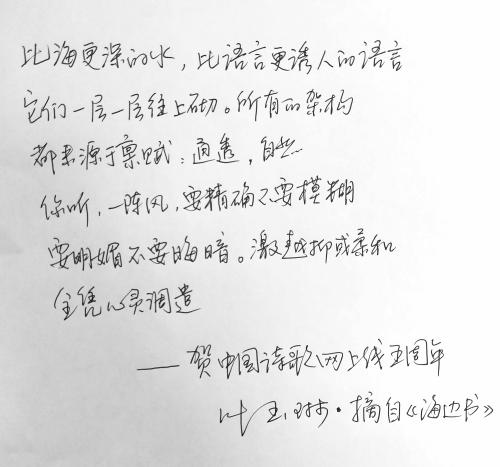 比海更深的水，比语言更诱人的语言
它们一层一层往上砌。所有的架构
都来源于禀赋：通透，自然…
你听，一阵风，要精确不要模糊
要明媚不要晦暗。激越抑或柔和
全凭心灵调遣
——贺中国诗歌网上线五周年
叶玉琳·摘自《海边书》